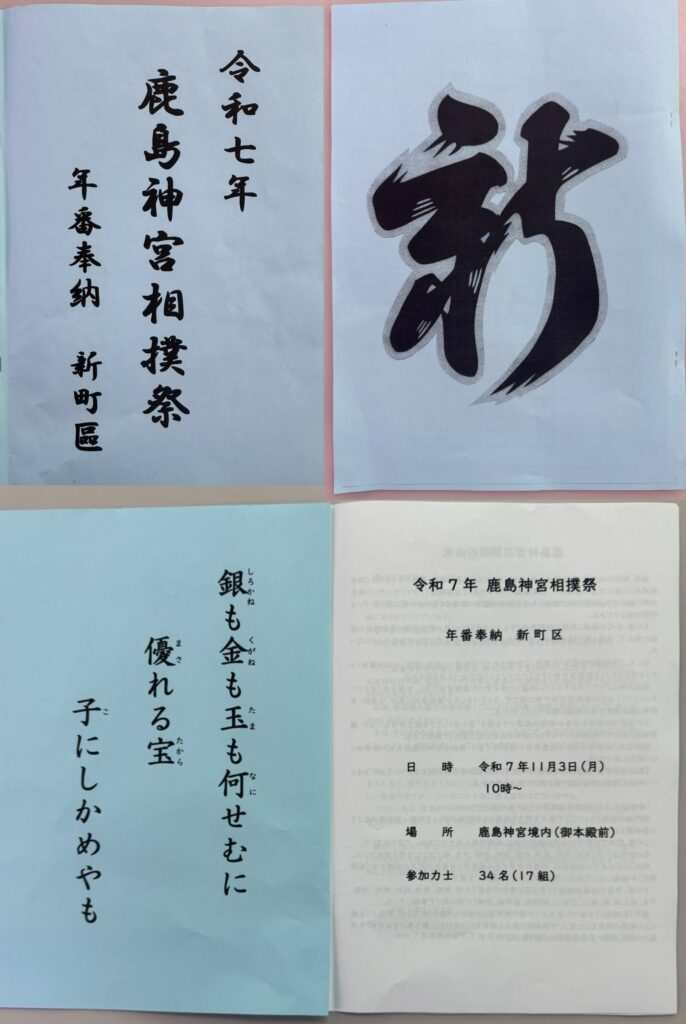 令和七年
鹿島神宮相撲祭
年番奉納 新町區
新
銀も金も玉も何せむに
しろかね くがね たま なに
優れる宝
まさ たから
子にしかめやも
こ
令和7年 鹿島神宮相撲祭
年番奉納 新町区
日 時 令和7年11月3日(月)
10時~
場 所 鹿島神宮境内(御本殿前)
参加力士 34名(17組)